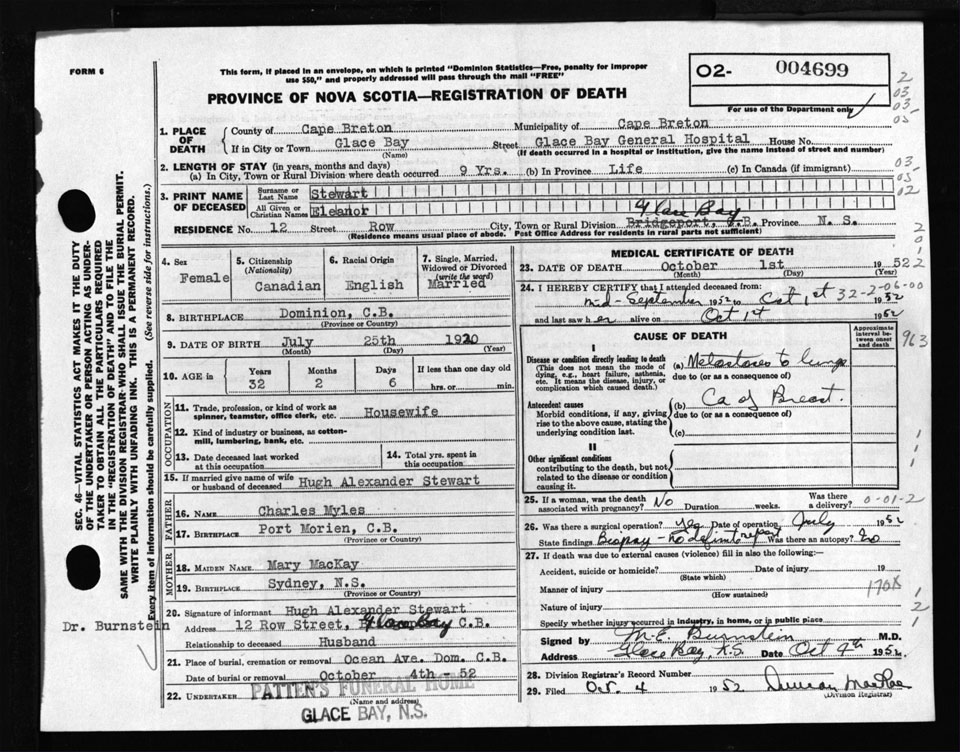 FORM 6
This form, if placed in an envelope, on which is printed "Dominion Statistics—Free, penalty for improper
use $50," and properly addressed will pass through the mail "FREE"
PROVINCE OF NOVA SCOTIA—REGISTRATION OF DEATH
02- 004699
For use of the Department only
2
03
03-
05
1. PLACE OF DEATH
County of Cape Breton Municipality of Cape Breton
If in City or Town Glace Bay Street Glace Bay General Hospital House No.
(Name) (If death occurred in a hospital or institution, give the name instead of street and number)
2. LENGTH OF STAY (in years, months and days)
(a) In City, Town or Rural Division where death occurred 9 Yrs. (b) In Province Life (c) In Canada (if immigrant)
03-
05
02
3. PRINT NAME OF DECEASED
Surname or Last Name Stewart
All Given or Christian Names Eleanor
Glace Bay
RESIDENCE No. 12 Street Row City, Town or Rural Division Bridgeport, C.B. Province N. S.
(Residence means usual place of abode. Post Office Address for residents in rural parts not sufficient)
2
0
1
4. Sex
Female
5. Citizenship
(Nationality)
Canadian
6. Racial Origin
English
7. Single, Married,
Widowed or Divorced
(write the word)
Married
8. BIRTHPLACE Dominion, C.B.
(Province or Country)
9. DATE OF BIRTH July 25th 1920
(Month) (Day) (Year)
10. AGE in
Years Months Days If less than one day old
32 2 6 hrs. or min.
OCCUPATION
11. Trade, profession, or kind of work as
spinner, teamster, office clerk, etc. Housewife
12. Kind of industry or business, as cotton-
mill, lumbering, bank, etc.
13. Date deceased last worked
at this occupation
14. Total yrs. spent in
this occupation
15. If married give name of wife
or husband of deceased Hugh Alexander Stewart
FATHER
16. NAME Charles Myles
17. BIRTHPLACE Port Morien, C.B.
(Province or Country)
MOTHER
18. MAIDEN NAME Mary MacKay
19. BIRTHPLACE Sydney, N.S.
(Province or Country)
20. Signature of informant Hugh Alexander Stewart
Address 12 Row Street, Glace Bay C.B.
Relationship to deceased Husband
21. Place of burial, cremation or removal Ocean Ave. Dom. C.B.
Date of burial or removal October 4th - 52
22. UNDERTAKER PATTEN'S FUNERAL HOME
(Name and address)
GLACE BAY, N.S.
MEDICAL CERTIFICATE OF DEATH
23. DATE OF DEATH October 1st 1952
(Month) (Day) (Year)
2
24. I HEREBY CERTIFY that I attended deceased from:
32-2-06-00
mid-September 1952 to Oct 1st 1952
and last saw her alive on Oct 1st 1952
CAUSE OF DEATH
Approximate
interval be-
tween onset
and death
963
I
Disease or condition directly leading to death
(This does not mean the mode of
dying, e.g., heart failure, asthenia,
etc. It means the disease, injury, or
complication which caused death.)
(a) Metastases to lungs
due to (or as a consequence of)
Antecedent causes
Morbid conditions, if any, giving
rise to the above cause, stating the
underlying condition last.
(b) Ca of Breast.
due to (or as a consequence of)
(c)
II
Other significant conditions
contributing to the death, but not
related to the disease or condition
causing it.
1
1
1
25. If a woman, was the death
associated with pregnancy? No Duration weeks. Was there
a delivery?
0-01-2
26. Was there a surgical operation? Yes Date of operation July 1952
State findings Biopsy - no definite report Was there an autopsy? No
27. If death was due to external causes (violence) fill in also the following:—
Accident, suicide or homicide? Date of injury 19
(State which)
Manner of injury
(How sustained)
170X
1
Nature of injury
2
Specify whether injury occurred in industry, in home, or in public place
1
Signed by M.E. Burnstein M.D.
Address Glace Bay, N.S. Date Oct 4th 1952
28. Division Registrar's Record Number
29. Filed Oct. 4 1952 Duncan MacRae
(Division Registrar)
SEC. 46—VITAL STATISTICS ACT MAKES IT THE DUTY
OF THE UNDERTAKER OR PERSON ACTING AS UNDER-
TAKER TO OBTAIN ALL THE PARTICULARS REQUIRED
IN THE "REGISTRATION OF DEATH" AND TO FILE THE
SAME WITH THE DIVISION REGISTRAR WHO SHALL ISSUE THE BURIAL PERMIT.
WRITE PLAINLY WITH UNFADING INK. THIS IS A PERMANENT RECORD.
Every item of information should be carefully supplied. (See reverse side for instructions.)
Dr. Burnstein